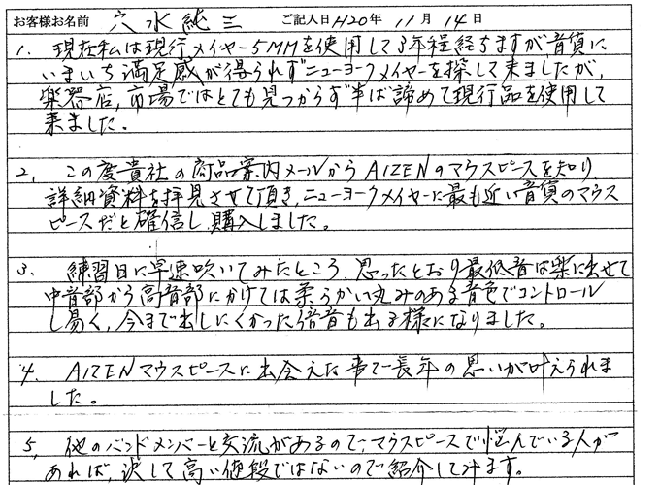 お客様お名前 穴水純三 ご記入日 H20年 11月 14日
1. 現在私は現行メイヤー5MMを使用して3年程経ちますが音質に
いまいち満足感が得られずニューヨークメイヤーを探して来ましたが、
楽器店,市場ではとても見つからず半ば諦めて現行品を使用して
来ました。
2, この度貴社の商品案内メールからAIZENのマウスピースを知り
詳細資料を拝見させて頂き,ニューヨークメイヤーに最も近い音質のマウス
ピースだと確信し,購入しました。
3. 練習日に早速吹いてみたところ,思ったとおり最低音は楽に出せて
中音部から高音部にかけては柔らかい丸みのある音色でコントロール
し易く,今まで出しにくかった倍音も出る様になりました。
4, AIZENマウスピースに出会えた事で長年の思いが叶えられま
した。
5, 他のバンドメンバーと交流があるので,マウスピースで悩んでいる人が
あれば,決して高い値段ではないので紹介してみます。